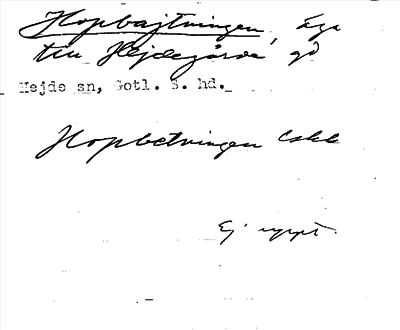 Hopbajtningen, äga
till Hejdegårda gd
Hejde sn, Gotl. S. hd.
Hopbetningen Lskk
Ej uppt.